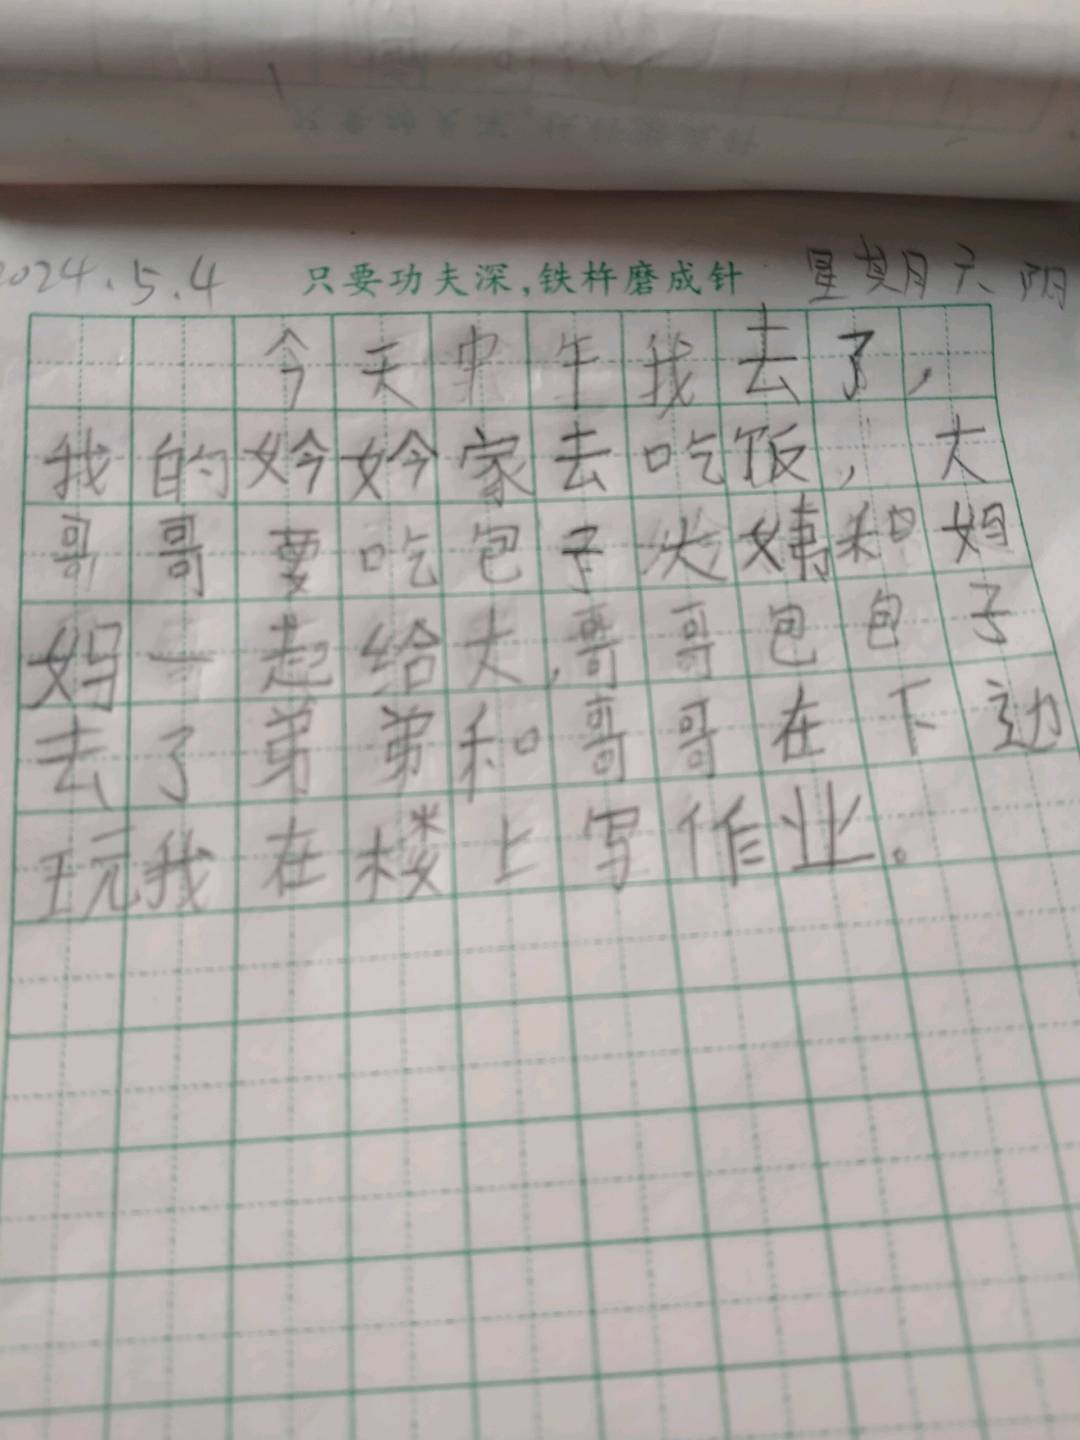 2024.5.4 只要功夫深,铁杵磨成针 星期六 阴
今天中午我去了,
我的妗妗家去吃饭,大
哥哥要吃包子大姨和妈
妈一起给大,哥哥包包子
去了弟弟和哥哥在下边
玩我在楼上写作业。